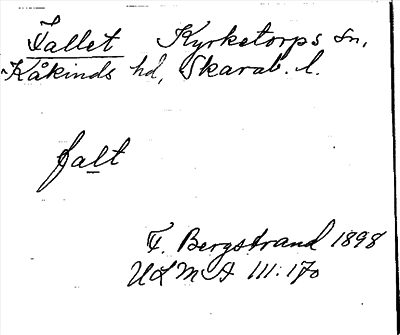 Fallet Kyrketorps sn,
Kåkinds hd, Skarab. l.
falt
F. Bergstrand 1898
ULMA 111:170